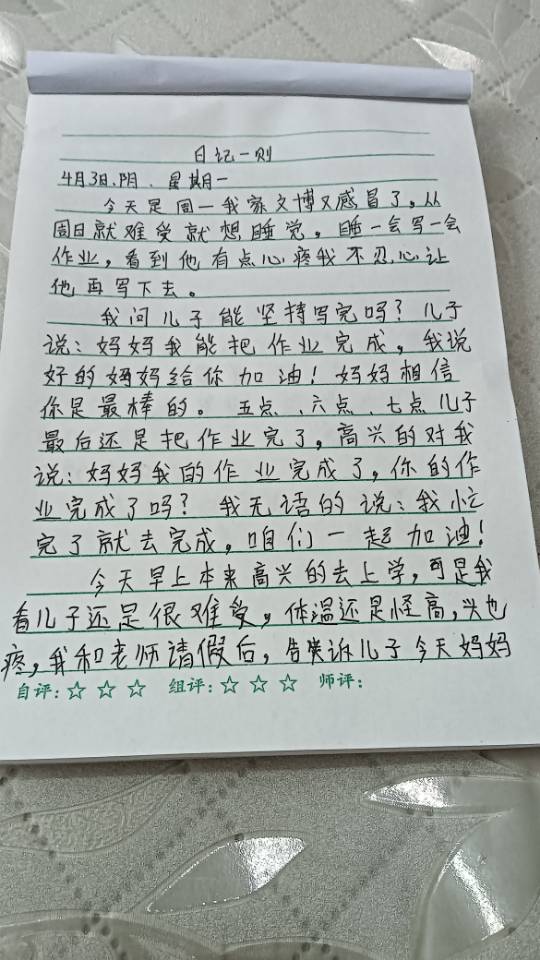 日记一则
4月3日.阴.星期一
今天是周一我家文博又感冒了,从
周日就难受就想睡觉。睡一会写一会
作业,看到他有点心疼我不忍心让
他再写下去。
我问儿子能坚持写完吗?儿子
说:妈妈我能把作业完成,我说
好的妈妈给你加油!妈妈相信
你是最棒的。五点、六点、七点儿子
最后还是把作业完了,高兴的对我
说:妈妈我的作业完成了,你的作
业完成了吗?我无语的说:我忙
完了就去完成,咱们一起加油!
今天早上本来高兴的去上学,可是我
看儿子还是很难受,体温还是怪高,头也
疼,我和老师请假后,告诉儿子今天妈妈
自评:☆ ☆ ☆ 组评:☆ ☆ ☆ 师评: